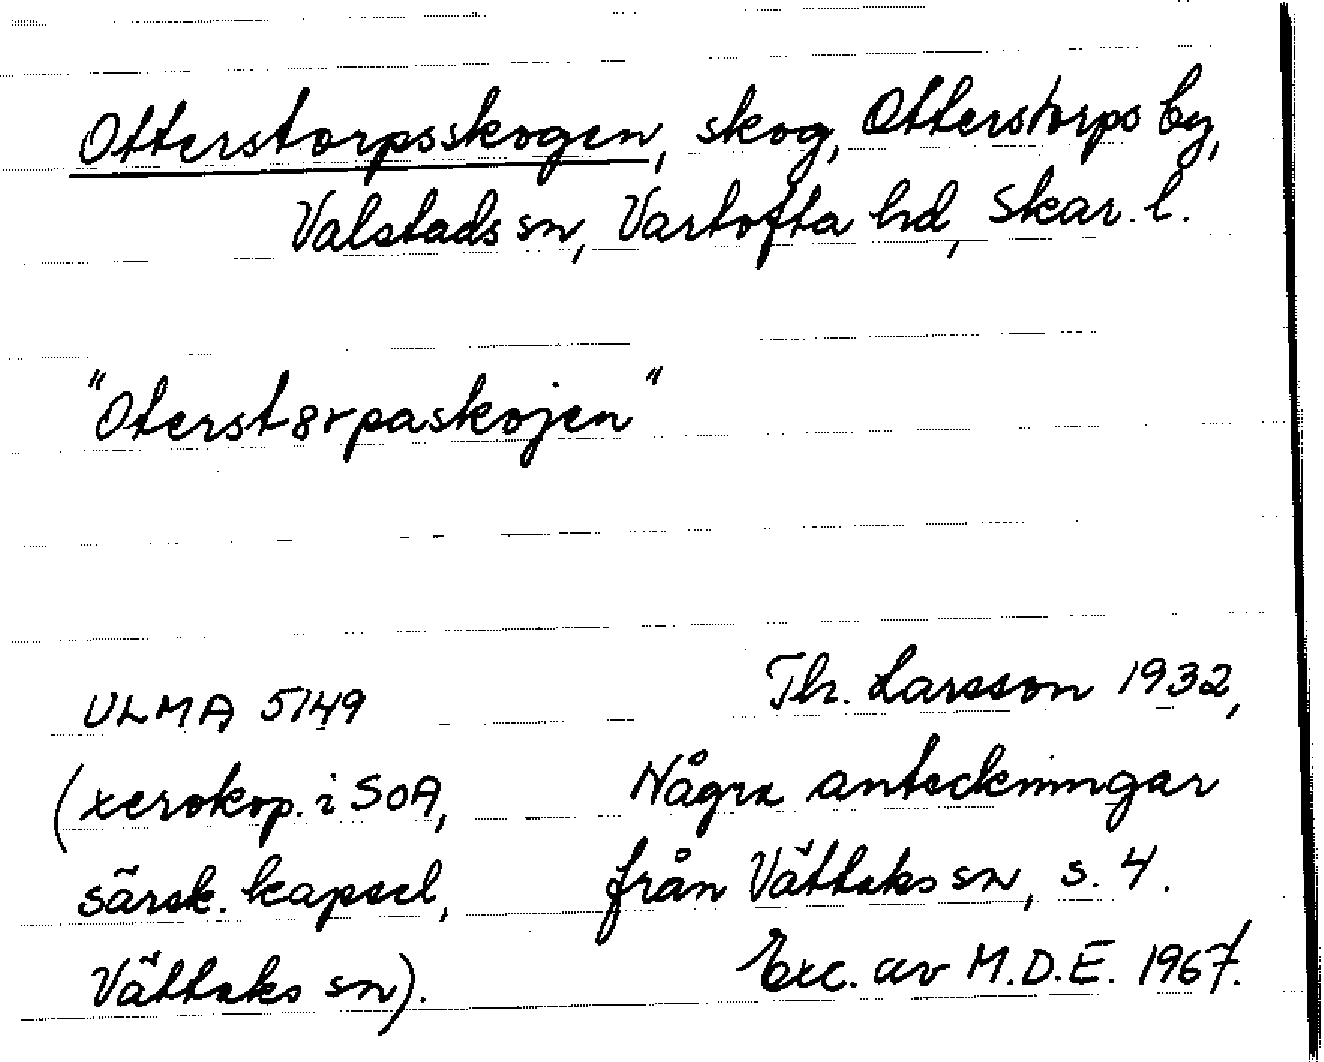 Otterstorpsskogen, skog, Otterstorps by,
Valstads sn, Vartofta hd, Skar. l.
"Oterst8rpaskojen"
ULMA 5149
(xerokop. i SOA,
särsk. kapsel,
Vättaks sn).
Th. Larsson 1932,
Några anteckningar
från Vättaks sn, s. 4.
Exc. av M.D.E. 1967.